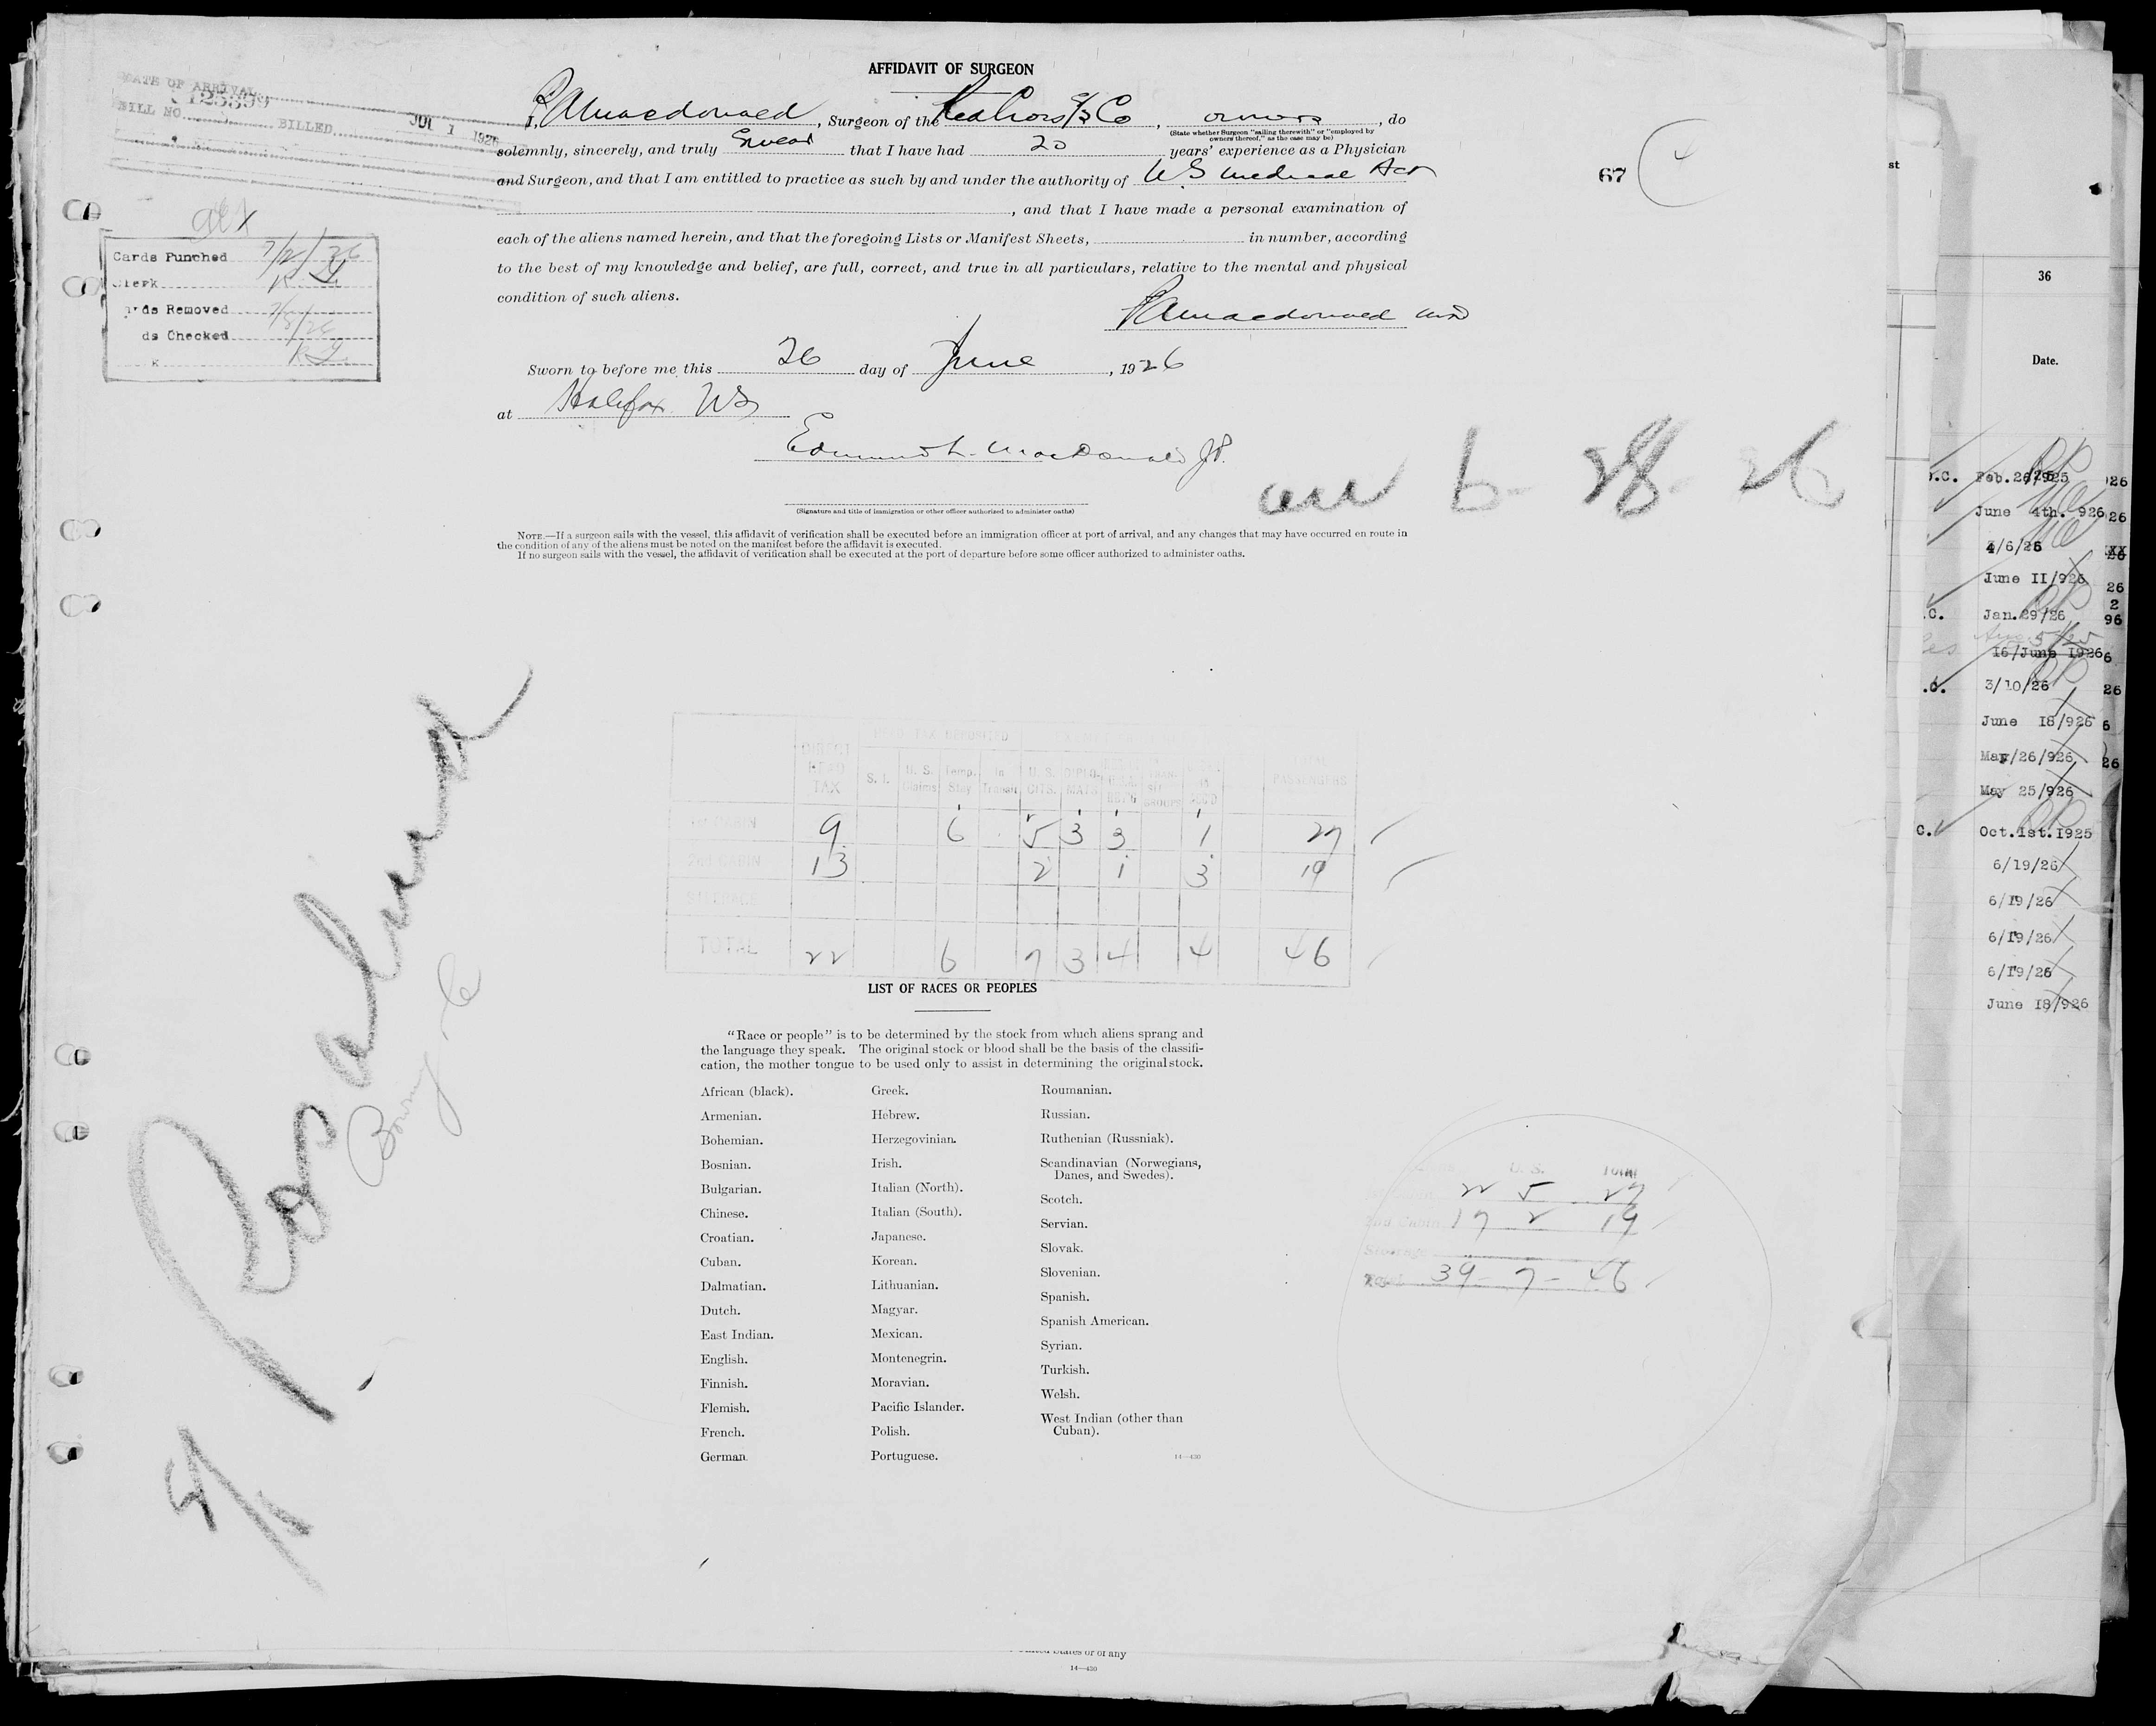 AFFIDAVIT OF SURGEON
DATE OF ARRIVAL
125399
BILL NO. BILLED JUL 1 1926
Macdonald, Surgeon of the Red Cross S/S Co, owners, do
(State whether Surgeon "sailing therewith" or "employed by
owners thereof," as the case may be)
solemnly, sincerely, and truly Swear that I have had 20 years' experience as a Physician
and Surgeon, and that I am entitled to practice as such by and under the authority of N.S Medical Act
67
4
, and that I have made a personal examination of
each of the aliens named herein, and that the foregoing Lists or Manifest Sheets, in number, according
to the best of my knowledge and belief, are full, correct, and true in all particulars, relative to the mental and physical
condition of such aliens.
Macdonald MD
Cards Punched 7/2/26
Clerk
rds Removed 7/8/26
ds Checked
k
Sworn to before me this 26 day of June, 1926
at Halifax NS
Edmund L. MacDonald J.P.
arr 6-28-26
(Signature and title of immigration or other officer authorized to administer oaths)
NOTE.—If a surgeon sails with the vessel, this affidavit of verification shall be executed before an immigration officer at port of arrival, and any changes that may have occurred en route in
the condition of any of the aliens must be noted on the manifest before the affidavit is executed.
If no surgeon sails with the vessel, the affidavit of verification shall be executed at the port of departure before some officer authorized to administer oaths.
S/S Rosalind
Bowring & Co
HEAD TAX DEPOSITED
DIRECT HEAD TAX S. I. U. S. Claims Temp. Stay In Transit U. S. CITS. DIPLO-MATS TOTAL PASSENGERS
1st CABIN 9 6 5 3 3 1 27
2nd CABIN 13 2 1 3 19
STEERAGE
TOTAL 22 6 7 3 4 4 46
LIST OF RACES OR PEOPLES
"Race or people" is to be determined by the stock from which aliens sprang and
the language they speak. The original stock or blood shall be the basis of the classifi-
cation, the mother tongue to be used only to assist in determining the original stock.
African (black).
Armenian.
Bohemian.
Bosnian.
Bulgarian.
Chinese.
Croatian.
Cuban.
Dalmatian.
Dutch.
East Indian.
English.
Finnish.
Flemish.
French.
German.
Greek.
Hebrew.
Herzegovinian.
Irish.
Italian (North).
Italian (South).
Japanese.
Korean.
Lithuanian.
Magyar.
Mexican.
Montenegrin.
Moravian.
Pacific Islander.
Polish.
Portuguese.
Roumanian.
Russian.
Ruthenian (Russniak).
Scandinavian (Norwegians,
Danes, and Swedes).
Scotch.
Servian.
Slovak.
Slovenian.
Spanish.
Spanish American.
Syrian.
Turkish.
Welsh.
West Indian (other than
Cuban).
14—430
U. S. TOTAL
22 5 27
2nd Cabin 17 2 19
Steerage
Total 39 - 7 - 46
United States or of any
14—430
st
36
Date.
.C. Feb.26/1925
June 4th. 926
4/6/26
June II/926
.C. Jan.29/26
Aug. 5/25
16/June 1926
.C. 3/10/26
June I8/926
May/26/926
May 25/926
C. Oct.1st.1925
6/19/26
6/19/26
6/19/26
6/19/26
June I8/926
26
26
26
2
96
6
26
6
26